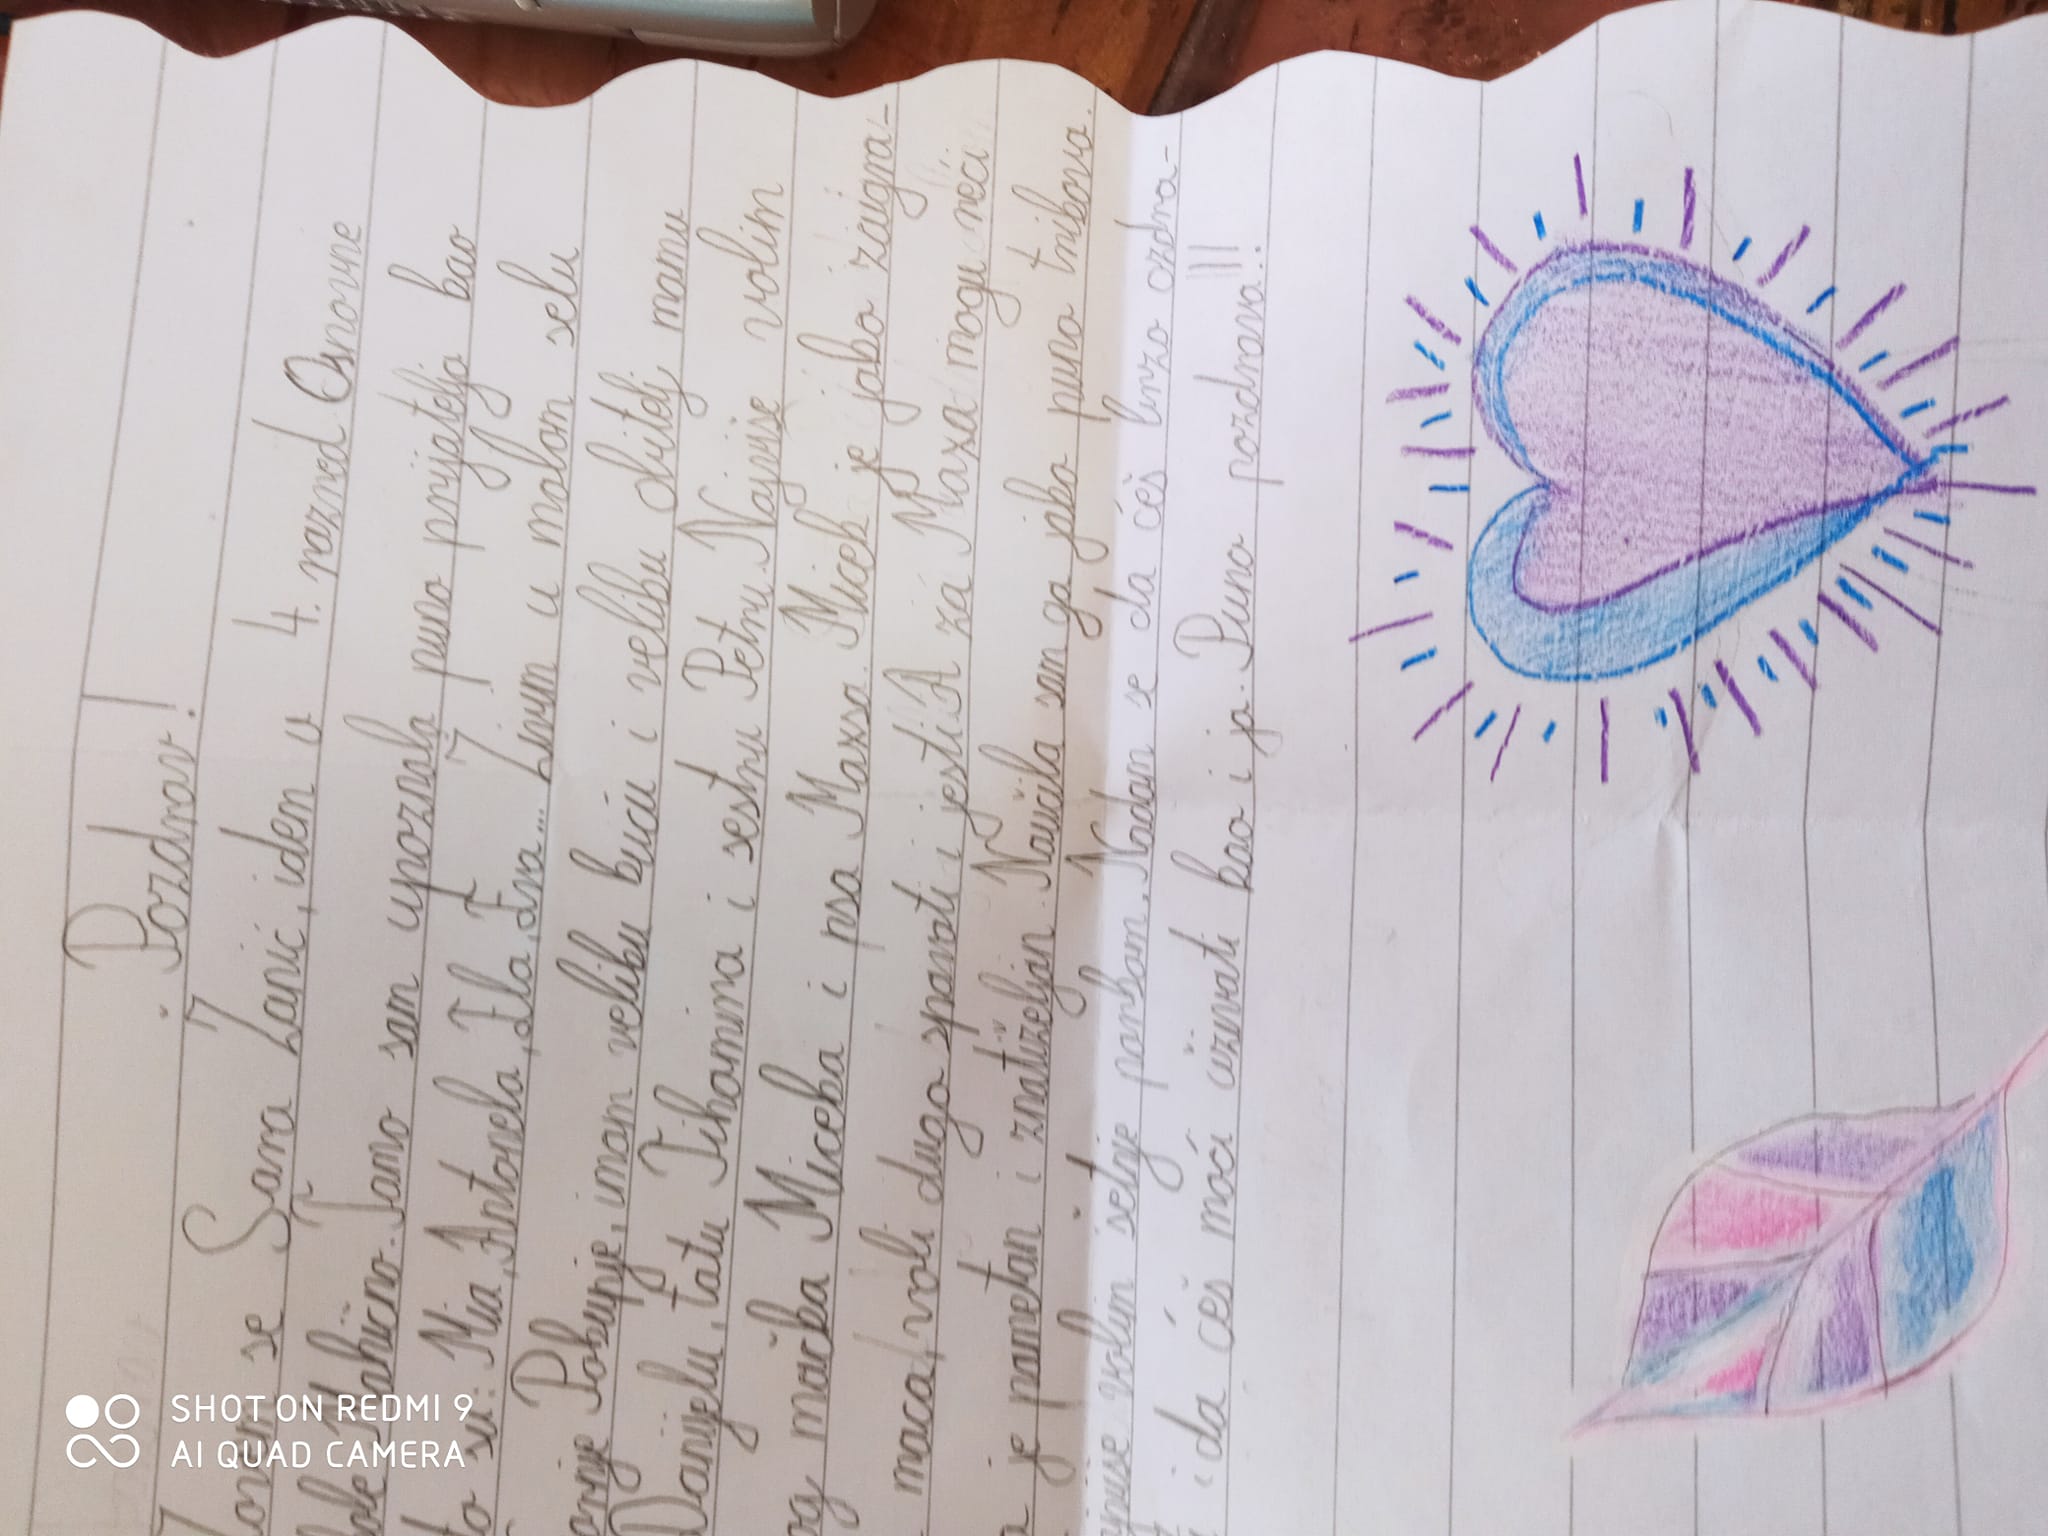 Pozdrav!
Zovem se Sara Zanić, idem u 4. razred Osnovne
Tamo sam upoznala puno prijatelja kao
to su: Mia, Antonela, Ela, Eva... Živim u malom selu
Pokupje, imam veliku kuću i veliku obitelj mamu
Danijelu, tatu Tihomira i sestru Petru. Najviše volim
mačka Miceka i psa Maxsa. Micek je jako zaigra-
maca, voli dugo spavati i jesti. A za Maxa mogu reći
je pametan i znatiželjan. Naučila sam ga jako puno trikova.
volim šetnje parkom. Nadam se da ćeš brzo ozdra-
i da ćeš moći uživati kao i ja. Puno pozdrava!!!
SHOT ON REDMI 9
AI QUAD CAMERA